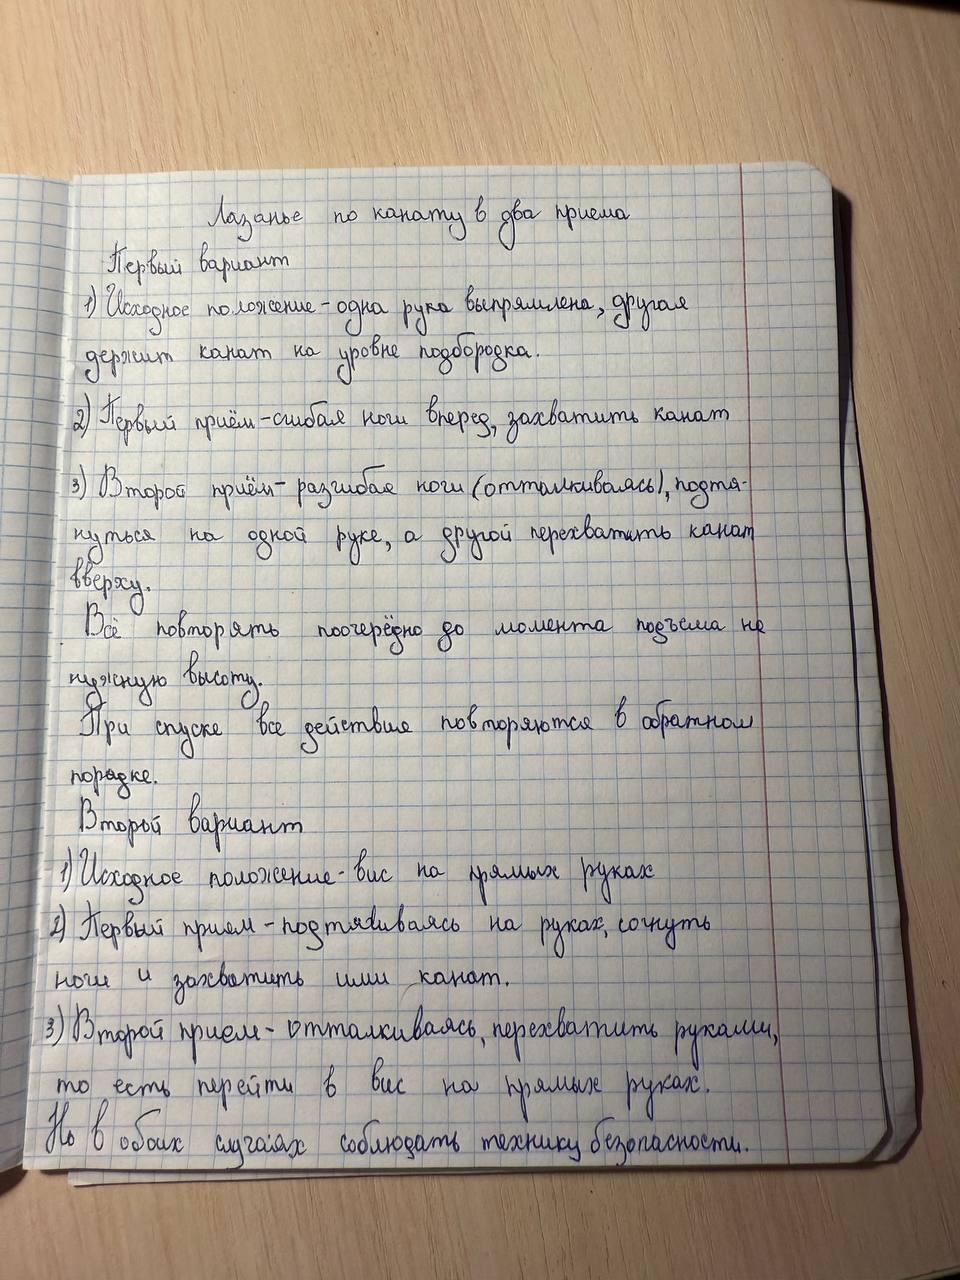 Лазанье по канату в два приема
Первый вариант
1) Исходное положение - одна рука выпрямлена, другая
держит канат на уровне подбородка.
2) Первый приём - сгибая ноги вперед, захватить канат
3) Второй приём - разгибая ноги (отталкиваясь), подтя-
нуться на одной руке, а другой перехватить канат
вверху.
Всё повторять поочерёдно до момента подъема на
нужную высоту.
При спуске все действия повторяются в обратном
порядке.
Второй вариант
1) Исходное положение - вис на прямых руках
2) Первый прием - подтягиваясь на руках, согнуть
ноги и захватить ими канат.
3) Второй прием - отталкиваясь, перехватить руками,
то есть перейти в вис на прямых руках.
Но в обоих случаях соблюдать технику безопасности.